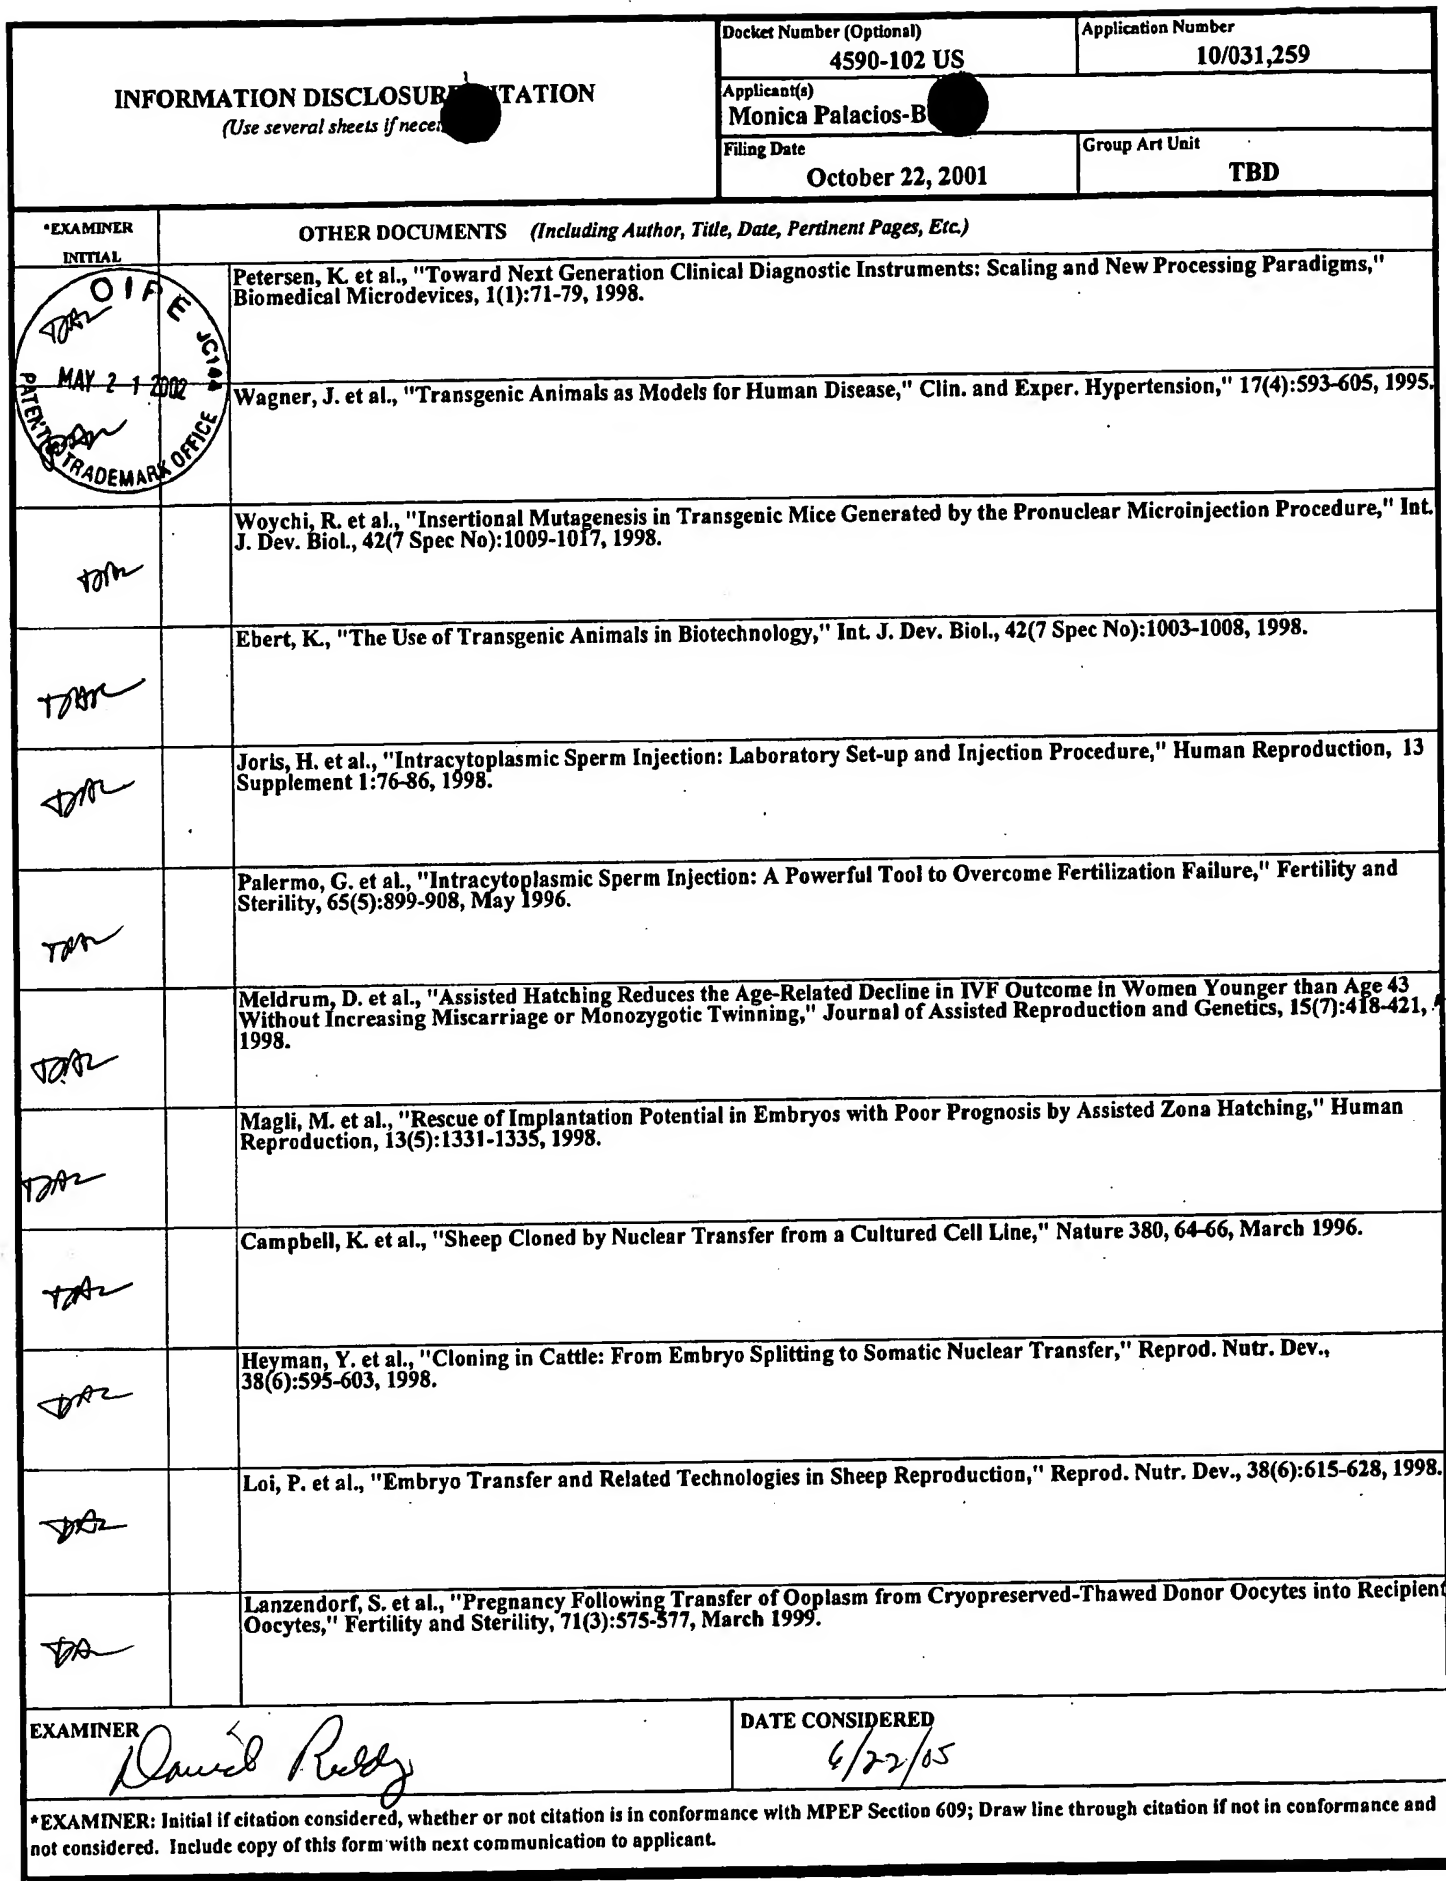 Docket Number (Optional)
4590-102 US
Application Number
10/031,259
INFORMATION DISCLOSURE TATION
(Use several sheets if
Applicant(s)
Monica
Filing Date
October 22, 2001
Group Art Unit
TBD
*EXAMINER
INITIAL
OTHER DOCUMENTS (Including Author, Title, Date, Pertinent Pages, Etc.)
OIPE JC144
MAY 21 2002
PATENT & TRADEMARK OFFICE
Petersen, K. et al., "Toward Next Generation Clinical Diagnostic Instruments: Scaling and New Processing Paradigms,"
Biomedical Microdevices, 1(1):71-79, 1998.
Wagner, J. et al., "Transgenic Animals as Models for Human Disease," Clin. and Exper. Hypertension," 17(4):593-605, 1995.
Woychi, R. et al., "Insertional Mutagenesis in Transgenic Mice Generated by the Pronuclear Microinjection Procedure," Int.
J. Dev. Biol., 42(7 Spec No):1009-1017, 1998.
Ebert, K., "The Use of Transgenic Animals in Biotechnology," Int. J. Dev. Biol., 42(7 Spec No):1003-1008, 1998.
Joris, H. et al., "Intracytoplasmic Sperm Injection: Laboratory Set-up and Injection Procedure," Human Reproduction, 13
Supplement 1:76-86, 1998.
Palermo, G. et al., "Intracytoplasmic Sperm Injection: A Powerful Tool to Overcome Fertilization Failure," Fertility and
Sterility, 65(5):899-908, May 1996.
Meldrum, D. et al., "Assisted Hatching Reduces the Age-Related Decline in IVF Outcome in Women Younger than Age 43
Without Increasing Miscarriage or Monozygotic Twinning," Journal of Assisted Reproduction and Genetics, 15(7):418-421,
1998.
Magli, M. et al., "Rescue of Implantation Potential in Embryos with Poor Prognosis by Assisted Zona Hatching," Human
Reproduction, 13(5):1331-1335, 1998.
Campbell, K. et al., "Sheep Cloned by Nuclear Transfer from a Cultured Cell Line," Nature 380, 64-66, March 1996.
Heyman, Y. et al., "Cloning in Cattle: From Embryo Splitting to Somatic Nuclear Transfer," Reprod. Nutr. Dev.,
38(6):595-603, 1998.
Loi, P. et al., "Embryo Transfer and Related Technologies in Sheep Reproduction," Reprod. Nutr. Dev., 38(6):615-628, 1998.
Lanzendorf, S. et al., "Pregnancy Following Transfer of Ooplasm from Cryopreserved-Thawed Donor Oocytes into Recipient
Oocytes," Fertility and Sterility, 71(3):575-577, March 1999.
EXAMINER
DATE CONSIDERED
6/22/05
*EXAMINER: Initial if citation considered, whether or not citation is in conformance with MPEP Section 609; Draw line through citation if not in conformance and
not considered. Include copy of this form with next communication to applicant.